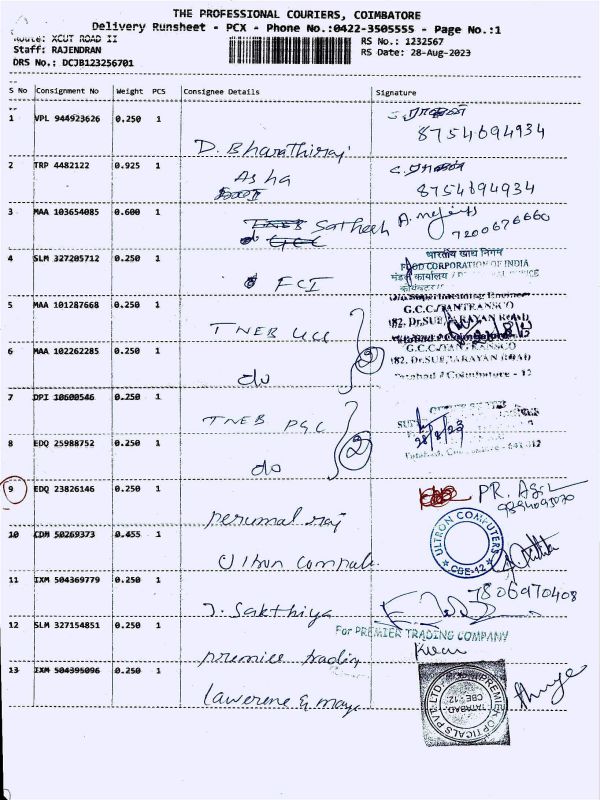 THE PROFESSIONAL COURIERS, COIMBATORE
Delivery Runsheet - PCX - Phone No.:0422-3505555 - Page No.:1
Route: XCUT ROAD II
RS No.: 1232567
Staff: RAJENDRAN
RS Date: 28-Aug-2023
DRS No.: DCJB123256701
S No Consignment No Weight PCS Consignee Details Signature
1 VPL 944923626 0.250 1
8754694934
D. Bharathiraj
2 TRP 4482122 0.925 1
Asha
8754694934
3 MAA 103654085 0.600 1
Satheesh
7200676660
4 SLM 327205712 0.250 1
भारतीय खाद्य निगम
FOOD CORPORATION OF INDIA
FCI
5 MAA 101287668 0.250 1
G.C.C./TANTRANSCO
182, Dr.SUBBARAYAN ROAD
TNEB
6 MAA 102262285 0.250 1
G.C.C./TANTRANSCO
182, Dr.SUBBARAYAN ROAD
Tatabad, Coimbatore - 12
do
2
7 DPI 10600546 0.250 1
TNEB PGC
28/8/23
8 EDQ 25988752 0.250 1
do
2
9 EDQ 23826146 0.250 1
PR.
Perumal raj
10 CDM 50269373 0.455 1
ULTRON COMPUTERS
CBE-12
11 IXM 504369779 0.250 1
7806970408
J. Sakthiya
12 SLM 327154851 0.250 1
For PREMIER TRADING COMPANY
premier trading
13 IXM 504395096 0.250 1
PREMIER OPTICALS PVT. LTD.
TATABAD
CBE - 12